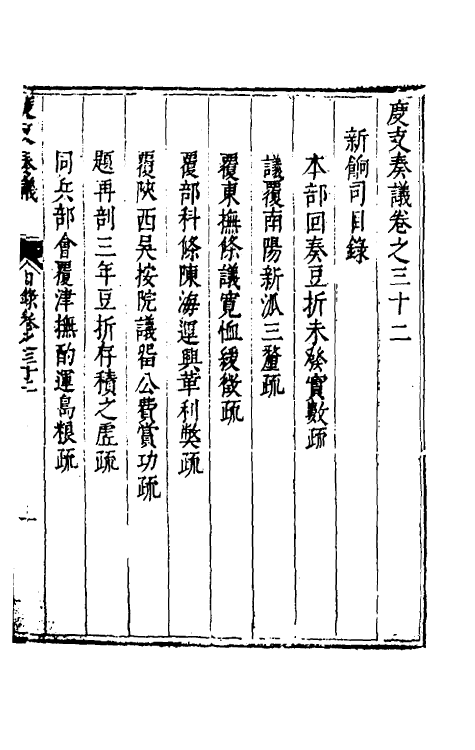 度支奏議卷之三十二
新餉司目錄
本部回奏豆折未發實數疏
議覆南陽新派三釐疏
覆東撫條議寬恤緩徵疏
覆部科條陳海運興革利獘疏
覆陝西吴按院議留公費賞功疏
題再剖三年豆折存積之虛疏
同兵部會覆津撫酌運島粮疏
度支奏議
目錄卷之三十二
一